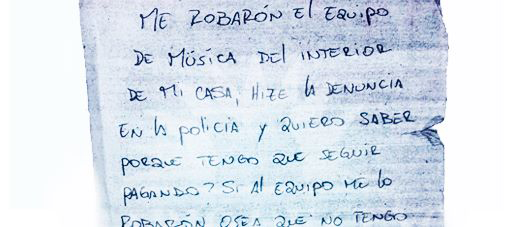 ME ROBARÓN El EQUIPO
DE MÚSICA DEl INTERIOR
DE Mi CASA, HIZE lA DENUNCIA
EN lA POLICIA Y QUIERO SABER
PORQUE TENGO QUE SEGUIR
PAGANDO? Si Al EQUIPO ME lo
ROBARÓN OSEA QUE NO TENGO